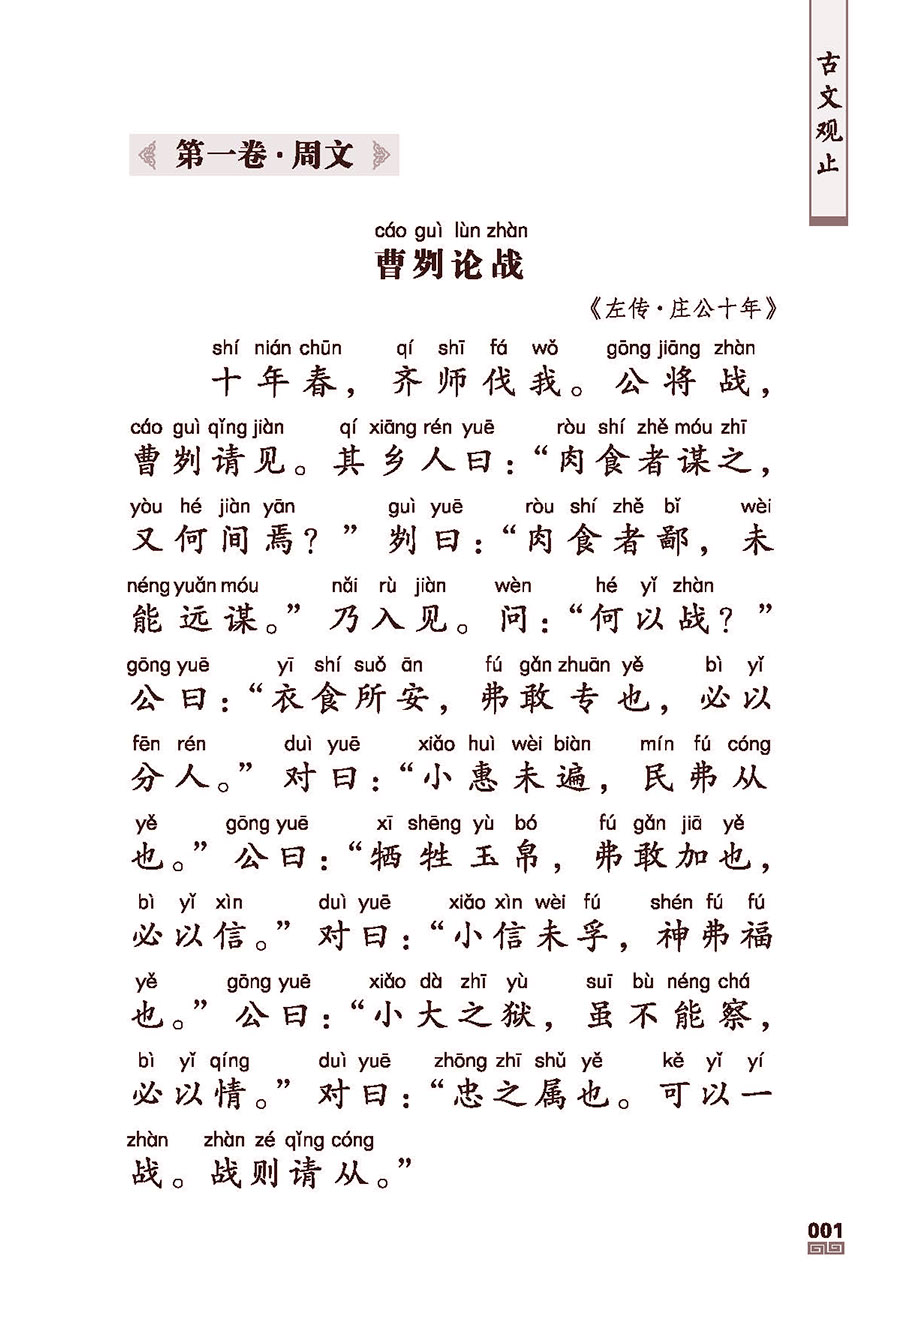 古文观止
第一卷·周文
cáo guì lùn zhàn
曹刿论战
《左传·庄公十年》
shí nián chūn qí shī fá wǒ gōng jiāng zhàn
十年春，齐师伐我。公将战，
cáo guì qǐng jiàn qí xiāng rén yuē ròu shí zhě móu zhī
曹刿请见。其乡人曰：“肉食者谋之，
yòu hé jiàn yān guì yuē ròu shí zhě bǐ wèi
又何间焉？”刿曰：“肉食者鄙，未
néng yuǎn móu nǎi rù jiàn wèn hé yǐ zhàn
能远谋。”乃入见。问：“何以战？”
gōng yuē yī shí suǒ ān fú gǎn zhuān yě bì yǐ
公曰：“衣食所安，弗敢专也，必以
fēn rén duì yuē xiǎo huì wèi biàn mín fú cóng
分人。”对曰：“小惠未遍，民弗从
yě gōng yuē xī shēng yù bó fú gǎn jiā yě
也。”公曰：“牺牲玉帛，弗敢加也，
bì yǐ xìn duì yuē xiǎo xìn wèi fú shén fú fú
必以信。”对曰：“小信未孚，神弗福
yě gōng yuē xiǎo dà zhī yù suī bù néng chá
也。”公曰：“小大之狱，虽不能察，
bì yǐ qíng duì yuē zhōng zhī shǔ yě kě yǐ yí
必以情。”对曰：“忠之属也。可以一
zhàn zhàn zé qǐng cóng
战。战则请从。”
001